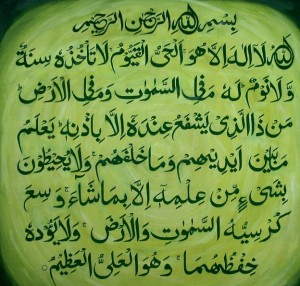 بِسْمِ اللهِ الرَّحْمٰنِ الرَّحِيْمِ
اَللهُ لَا اِلٰهَ اِلَّا هُوَ اَلْحَىُّ الْقَيُّوْمُ لَا تَاْخُذُهٗ سِنَةٌ
وَّلَا نَوْمٌ لَهٗ مَا فِى السَّمٰوٰتِ وَمَا فِى الْاَرْضِ
مَنْ ذَا الَّذِىْ يَشْفَعُ عِنْدَهٗ اِلَّا بِاِذْنِهٖ يَعْلَمُ
مَا بَيْنَ اَيْدِيْهِمْ وَمَا خَلْفَهُمْ وَلَا يُحِيْطُوْنَ
بِشَىْءٍ مِّنْ عِلْمِهٖ اِلَّا بِمَا شَاءَ وَسِعَ
كُرْسِيُّهُ السَّمٰوٰتِ وَالْاَرْضَ وَلَا يَؤُدُهٗ
حِفْظُهُمَا وَهُوَ الْعَلِىُّ الْعَظِيْمُ